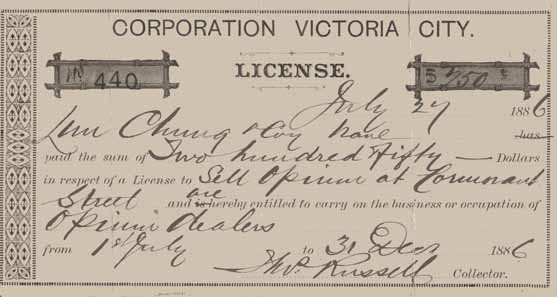 CORPORATION VICTORIA CITY.
No 440 LICENSE. $ 250
July 27 1886
Lum Chung & Coy have has
paid the sum of Two hundred Fifty — Dollars
in respect of a License to Sell Opium at Cormorant
Street and is are hereby entitled to carry on the business or occupation of
Opium dealers
from 1st July to 31 Decr 1886
Thos. Russell Collector.